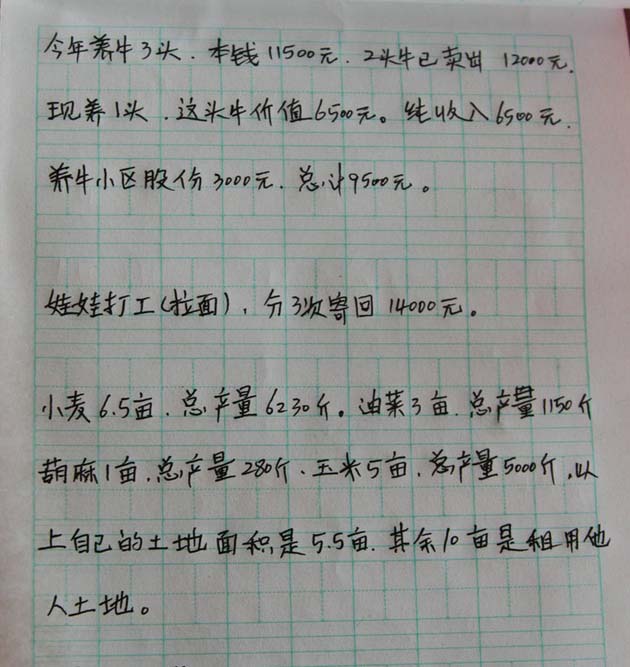 今年养牛3头.本钱11500元.2头牛已卖出12000元.
现养1头.这头牛价值6500元。纯收入6500元.
养牛小区股份3000元.总计9500元。
娃娃打工(拉面),分3次寄回14000元。
小麦6.5亩.总产量6230斤。油菜3亩.总产量1150斤
葫麻1亩.总产量280斤.玉米5亩.总产量5000斤.以
上自己的土地面积是5.5亩.其余10亩是租用他
人土地。